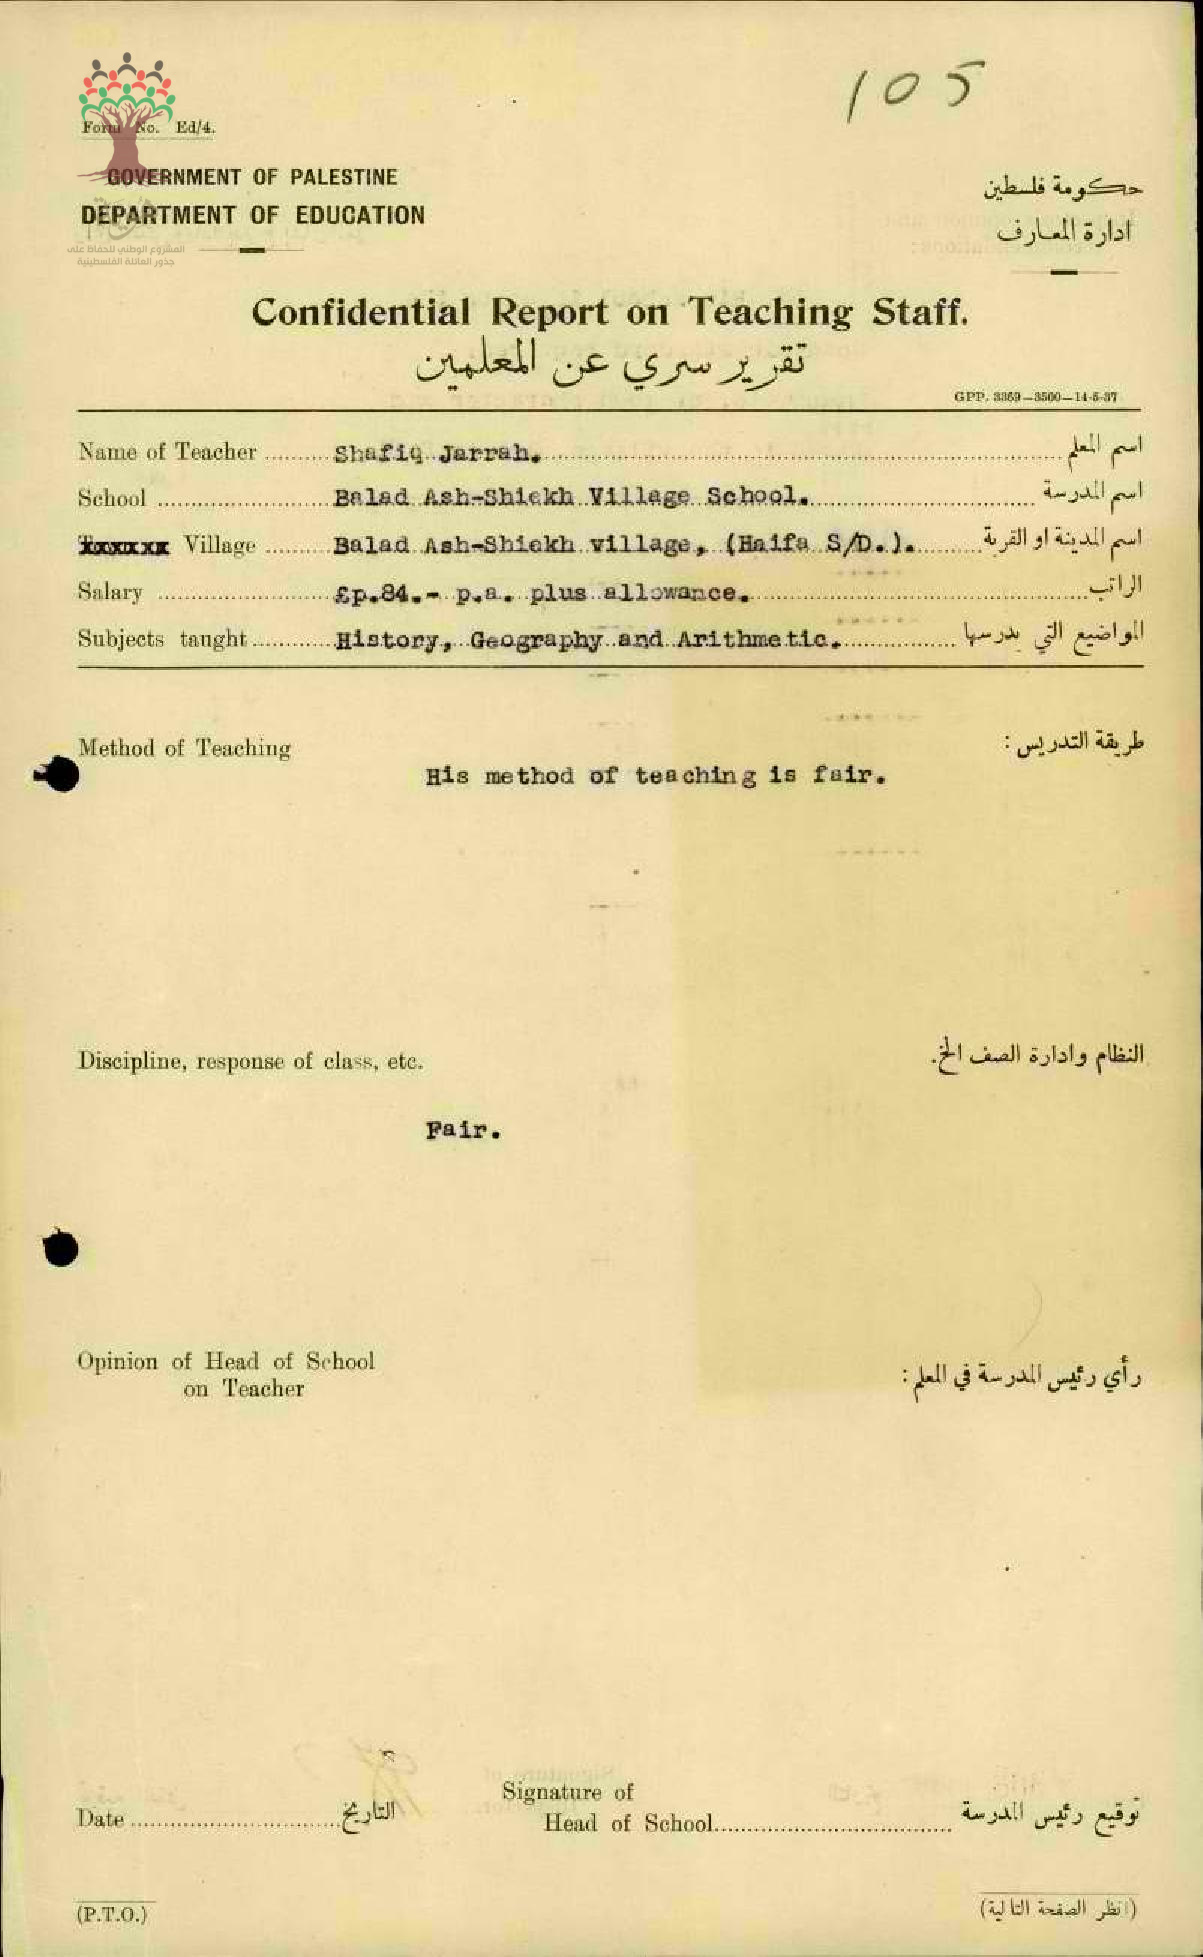 105
Form No. Ed/4.
GOVERNMENT OF PALESTINE
DEPARTMENT OF EDUCATION
حكومة فلسطين
ادارة المعارف
المشروع الوطني للحفاظ على
جذور العائلة الفلسطينية
Confidential Report on Teaching Staff.
تقرير سري عن المعلمين
GPP. 3369—3500—14-5-37
Name of Teacher Shafiq Jarrah. اسم المعلم
School Balad Ash-Shiekh Village School. اسم المدرسة
Village Balad Ash-Shiekh village, (Haifa S/D.). اسم المدينة او القرية
Salary £p.84.- p.a. plus allowance. الراتب
Subjects taught History, Geography and Arithmetic. المواضيع التي يدرسها
Method of Teaching طريقة التدريس :
His method of teaching is fair.
Discipline, response of class, etc. النظام وادارة الصف الخ.
Fair.
Opinion of Head of School
on Teacher
رأي رئيس المدرسة في المعلم :
Signature of
Date التاريخ Head of School توقيع رئيس المدرسة
(P.T.O.) (انظر الصفحة التالية)